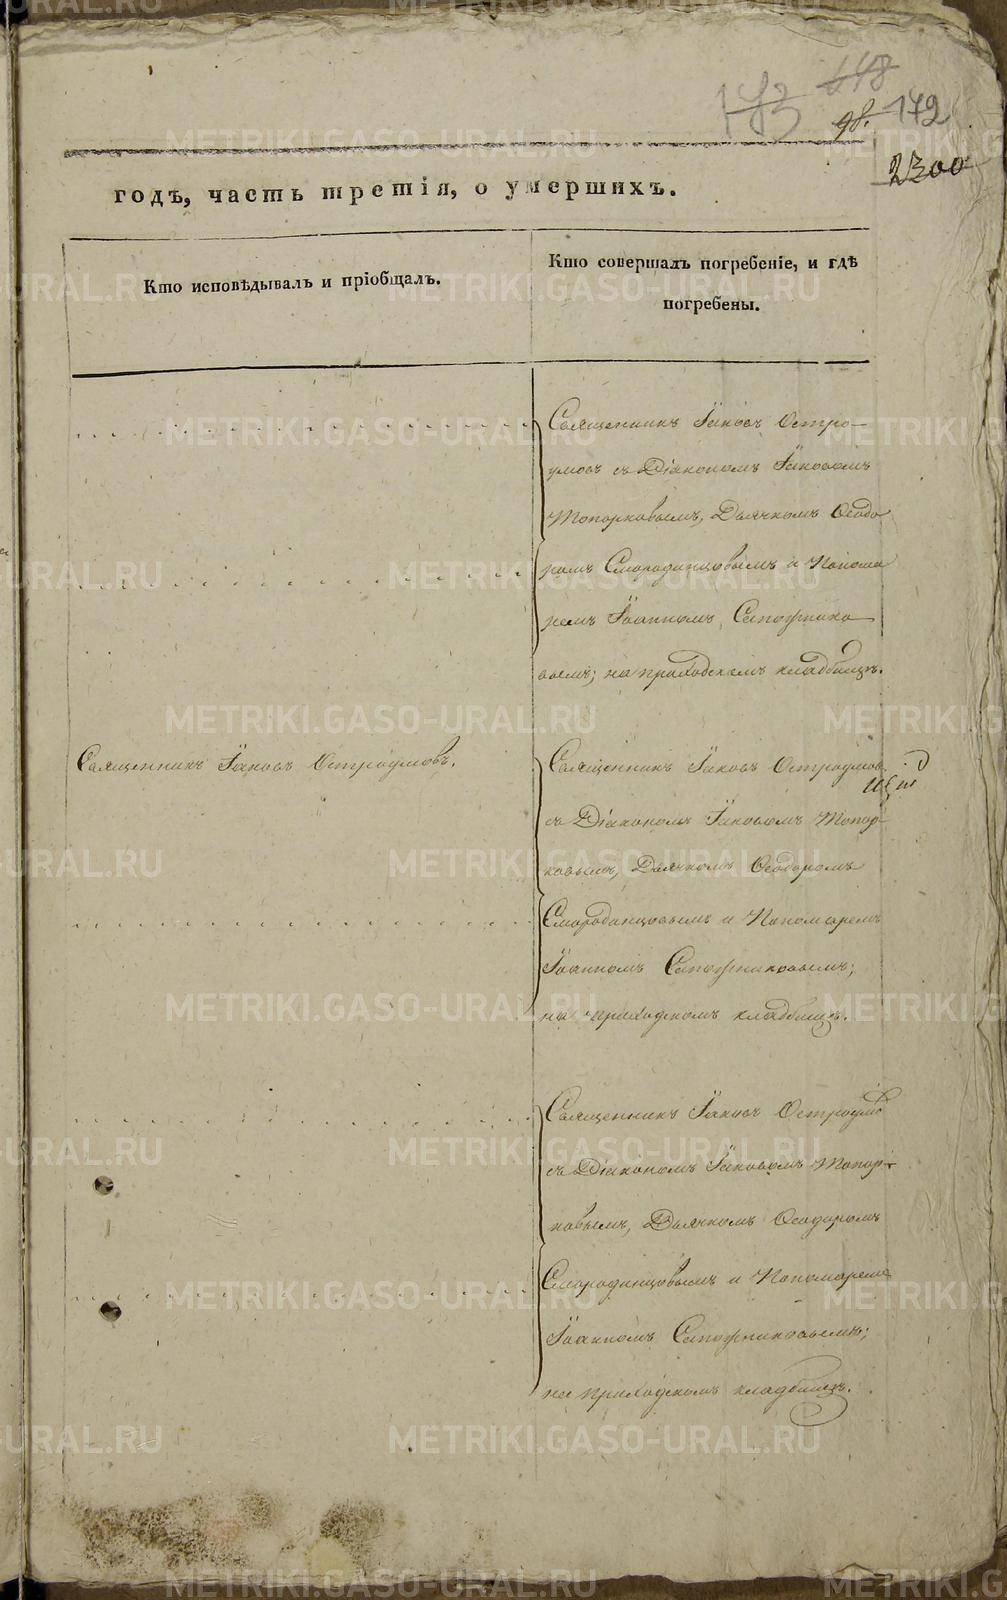 183 448
98. 172
2300
годъ, часть третія, о умершихъ.
Кто исповѣдывалъ и пріобщалъ.
Кто совершалъ погребеніе, и гдѣ
погребены.
Священникъ Іаковъ Остро-
умовъ съ Діакономъ Іаковомъ
Топорковымъ, Дьячкомъ Ѳеодо
ромъ Смородинцовымъ и Понома
ремъ Іоанномъ Сапожнико
вымъ; на приходскомъ кладбищѣ.
Священникъ Іаковъ Остроумовъ.
Священникъ Іаковъ Остроумов
съ Діакономъ Іаковомъ Топор-
ковымъ, Дьячкомъ Ѳеодоромъ
Смородинцовымъ и Пономаремъ
Іоанномъ Сапожниковымъ;
на приходскомъ кладбищѣ.
Священникъ Іаковъ Остроумов
съ Діакономъ Іаковомъ Топор-
ковымъ, Дьячкомъ Ѳеодоромъ
Смородинцовымъ и Пономаремъ
Іоанномъ Сапожниковымъ;
на приходскомъ кладбищѣ.
METRIKI.GASO-URAL.RU